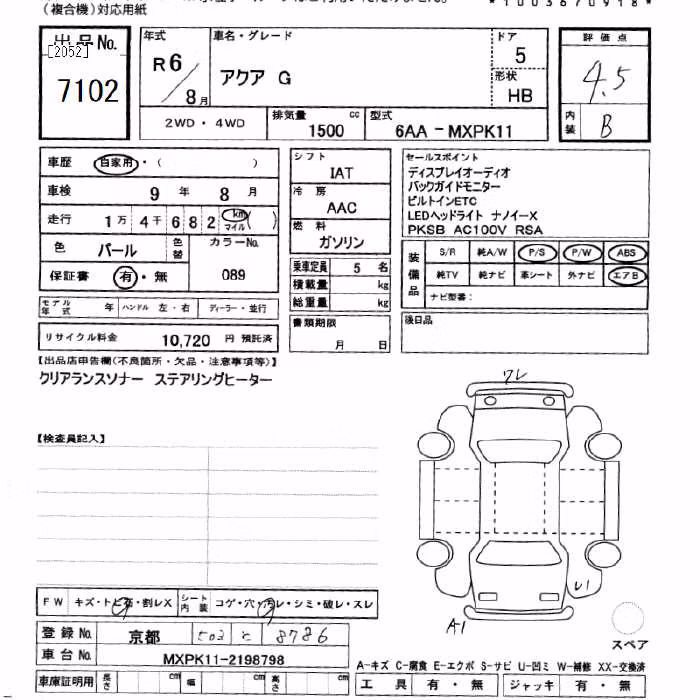 (複合機)対応用紙
*1003670918*
出品No.
[2052]
7102
年式
R6
8月
車名・グレード
アクア G
ドア
5
形状
HB
2WD・4WD
排気量
1500 cc
型式
6AA-MXPK11
評価点
4.5
内装
B
車歴 自家用・( )
車検 9年 8月
走行 1万 4千 6 8 2 km マイル ( )
色 パール 色替
カラーNo. 089
保証書 有・無
モデル年式 年 ハンドル 左・右 ディーラー・並行
リサイクル料金 10,720 円 預託済
シフト
IAT
冷房
AAC
燃料
ガソリン
乗車定員 5 名
積載量 kg
総重量 kg
書類期限
月 日
セールスポイント
ディスプレイオーディオ
バックガイドモニター
ビルトインETC
LEDヘッドライト ナノイーX
PKSB AC100V RSA
装備品
S/R 純A/W P/S P/W ABS
純TV 純ナビ 革シート 外ナビ エアB
ナビ型番:
後日品
【出品店申告欄(不良箇所・欠品・注意事項等)】
クリアランスソナー ステアリングヒーター
【検査員記入】
ワレ
U1
A1
スペア
FW キズ・トビ石・割レX
シート内装 コゲ・穴・汚レ・シミ・破レ・スレ
登録No. 京都 503 と 8786
車台No. MXPK11-2198798
車庫証明用 長さ cm 幅 cm 高さ cm
A-キズ C-腐食 E-エクボ S-サビ U-凹ミ W-補修 XX-交換済
工具 有・無 ジャッキ 有・無